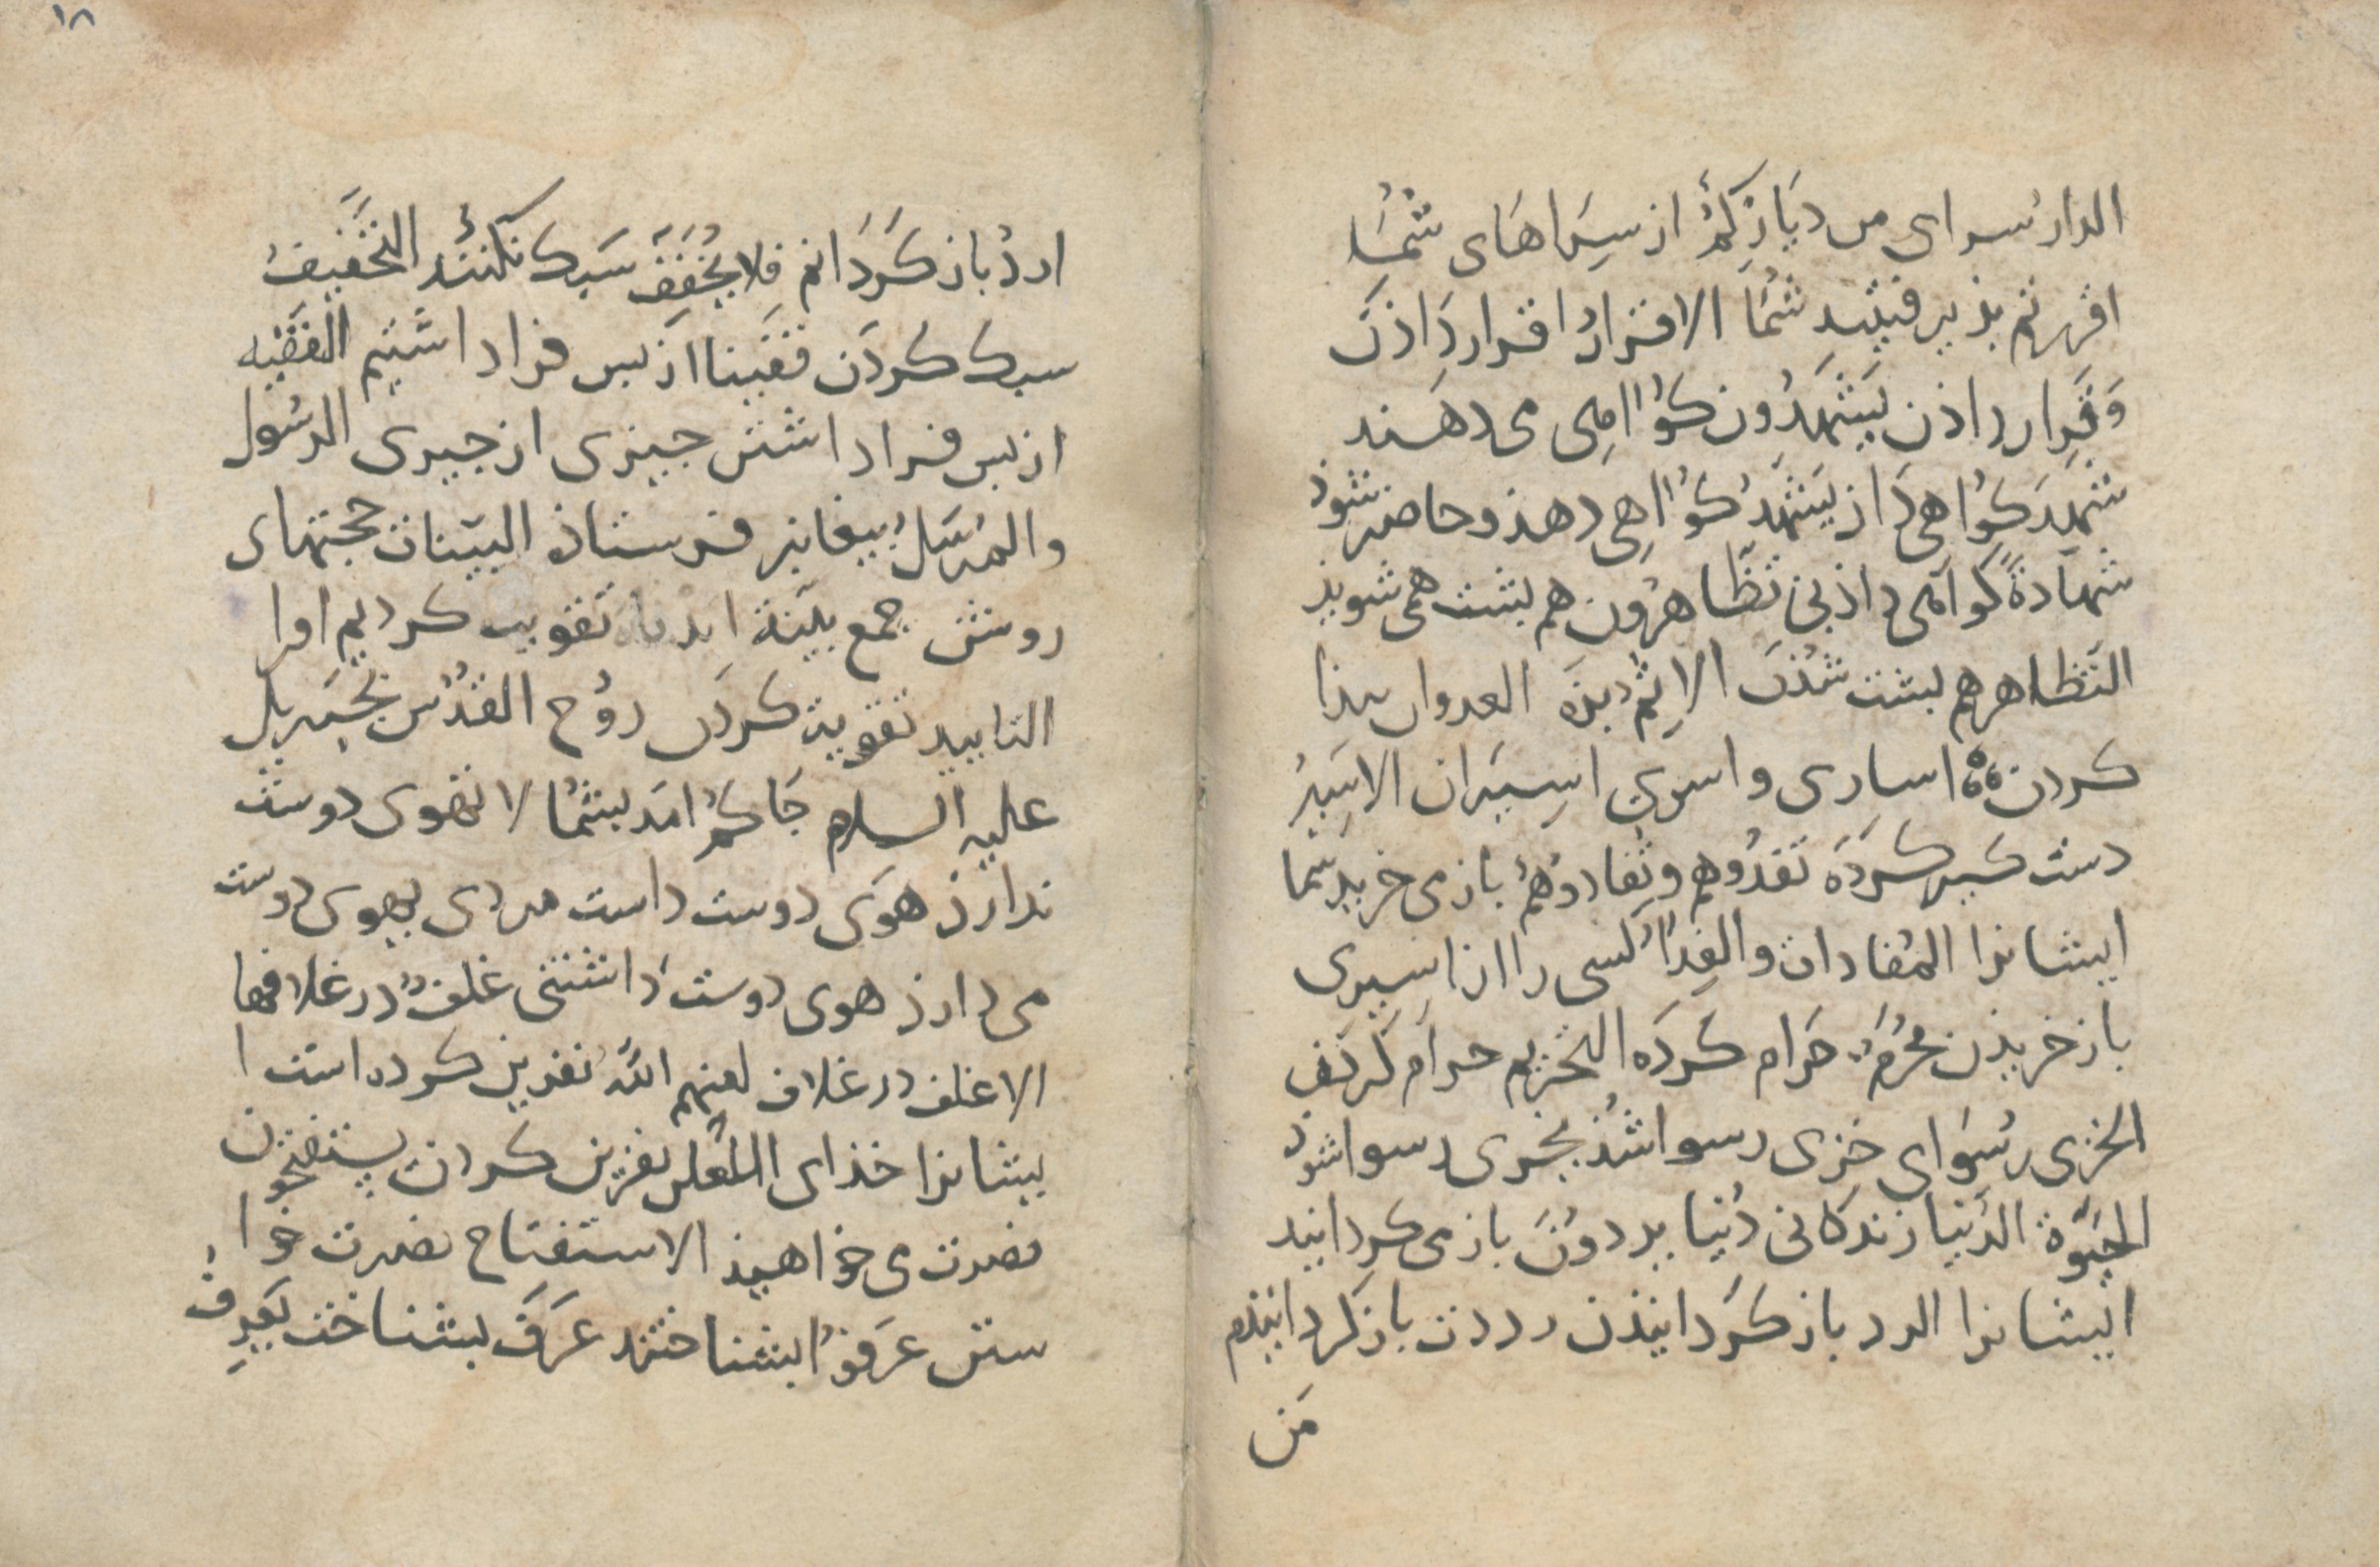 الدارُ سرای من دِیَارِکُمْ از سِرَاهَای شُمَا
اقررتم بذیرفتید شُمَا الاقرارُ اقرار دَاذَن
وَقَرِار داذن یَشْهَدُون کوُاهِی می دهند
شَهِدَ کوُاهی دَاذ یَشْهَدُ کوُاهِی دهذ و حاضر شوذ
شَهَادَةً کواهی داذنی تَظَّاهرُون هم بشت همی شویذ
التَظاهر هم بشت شُذَن الاِثم بزَه العدوان بیذا
کردن اسارِی و اسری اسِیَران الاسَیِرُ
دست کَیر کَردَه تَفدُوهم و تُفادوُهُمْ باز می خریذ شما
ایشانرا المُفادات و الفِدَاُ کسی را از اسیری
باز خریذن مُحَرَّمٌ حَرام کَردَه التحریم حرام کَردَن
الخزی رسُوَای خِزی رسوا شُذ یخزی رسوا شوذ
الحَیَوة الدُنیا زندکانی دُنیا یردوُنَ باز می کردانید
ایشانرا الرد باز کَردانیذن رددت باز کردانیذم
مَن
۱۸
اردُ باز کَردَانم فلا یُخَفَفُ سَبک نکنند التخَفیف
سبک کردَن قفَّینا از بس فرا داشتیم التقفیه
از بس فرا داشتن جیزی از جیزی الرسُول
والمُرسَلُ بیغامبر فرستاذه البیّنات حجتهای
روشن جمع بیّنة ایدناه تَقویت کردیم اورا
التایید تقویة کردن روُح القدُس جبَریل
علیه السلام جَاکمُ امَد بشمُا لا تهوی دوست
ندارذ هوَی دوست داست مردی یهوی دوست
می دارذ هوی دوست داشتنی غلفٌ در غلافها
الاغلف در غلاف لعنهم اللّه نفرین کرده است ا
یشانرا خذای اللعن نفرین کردن یستفتحون
نصرت می خواهیذ الاستفتاح نصرت خوا
ستن عرَفوُا بشناختند عَرَفَ بشناخت یَعرِفُ